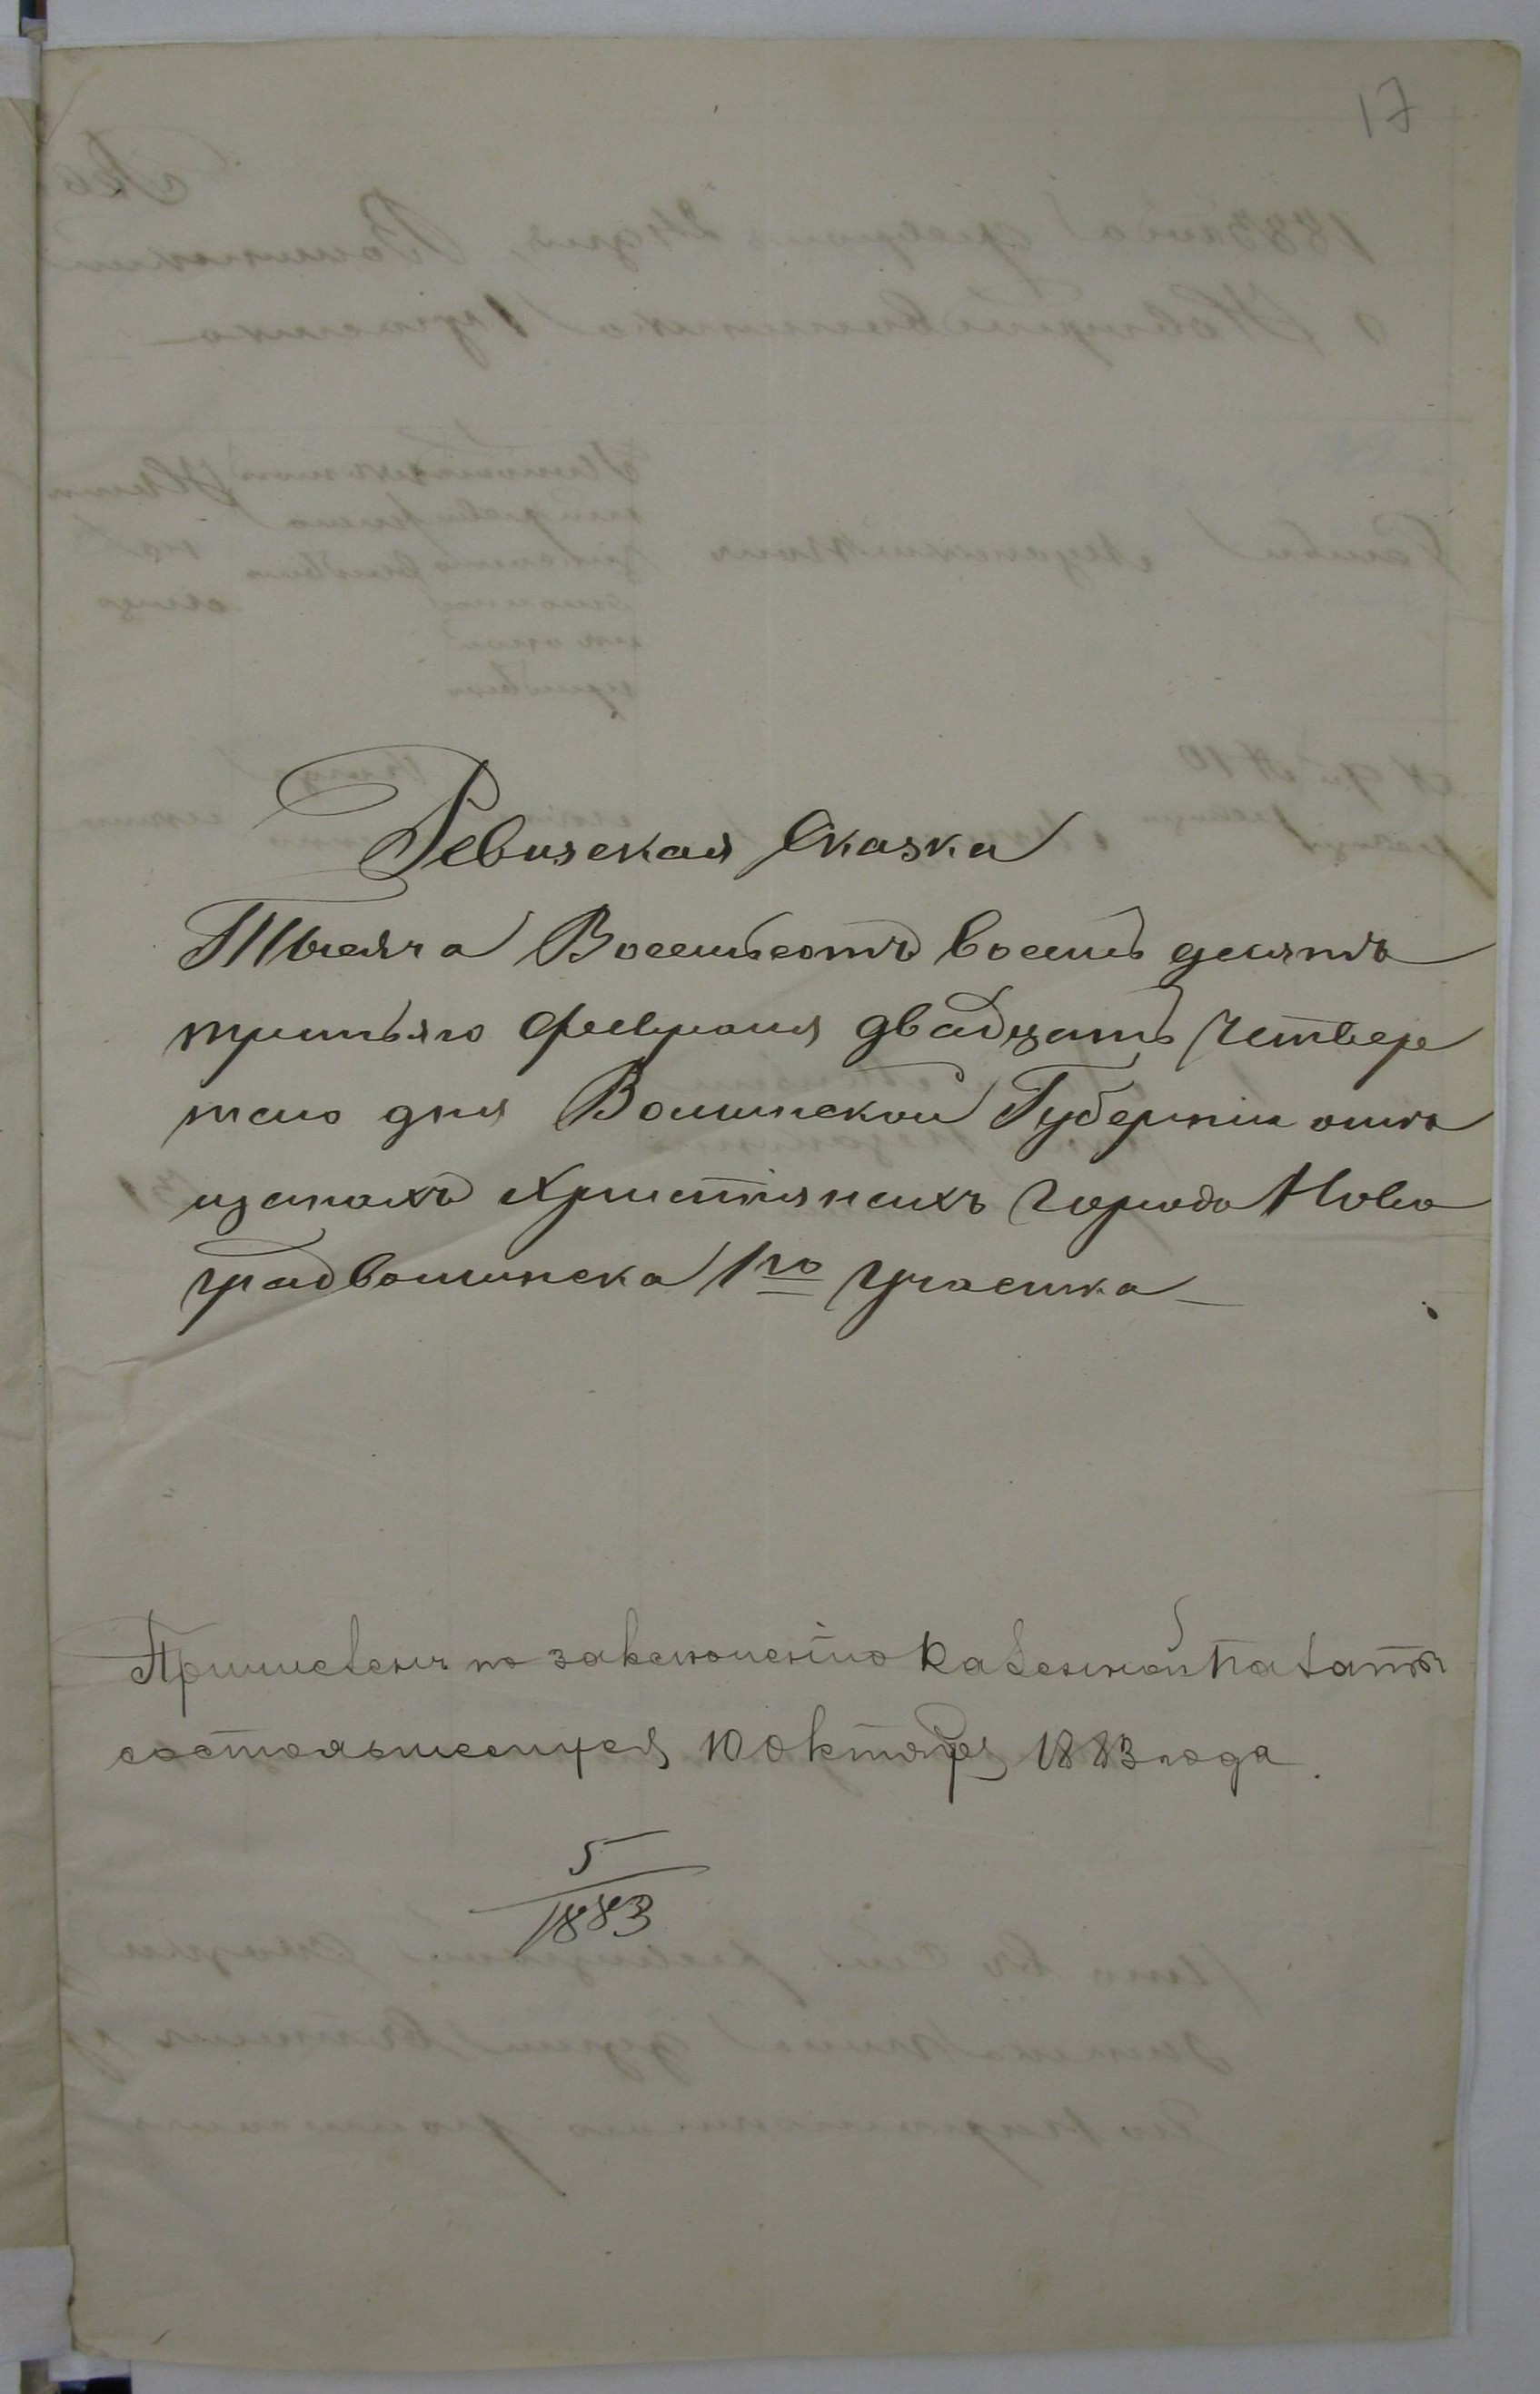 17
Ревизская Сказка
Тысяча Восемьсотъ восемь десятъ
третьяго февраля двадцать Четвер
таго дня Волынской Губернiи о мѣ
щанахъ Христiянахъ города Ново
градволынска 1го Участка
Причислены по заключенiю Казенной Палаты
состоявшемуся 10 Октября 1883 года.
5
1883